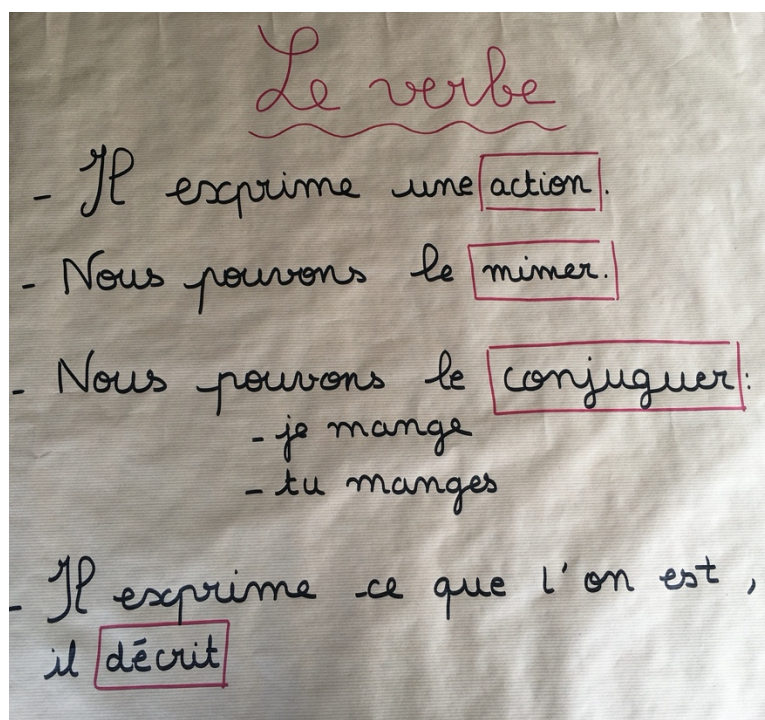 Le verbe
- Il exprime une action.
- Nous pouvons le mimer.
- Nous pouvons le conjuguer :
- je mange
- tu manges
- Il exprime ce que l'on est,
il décrit